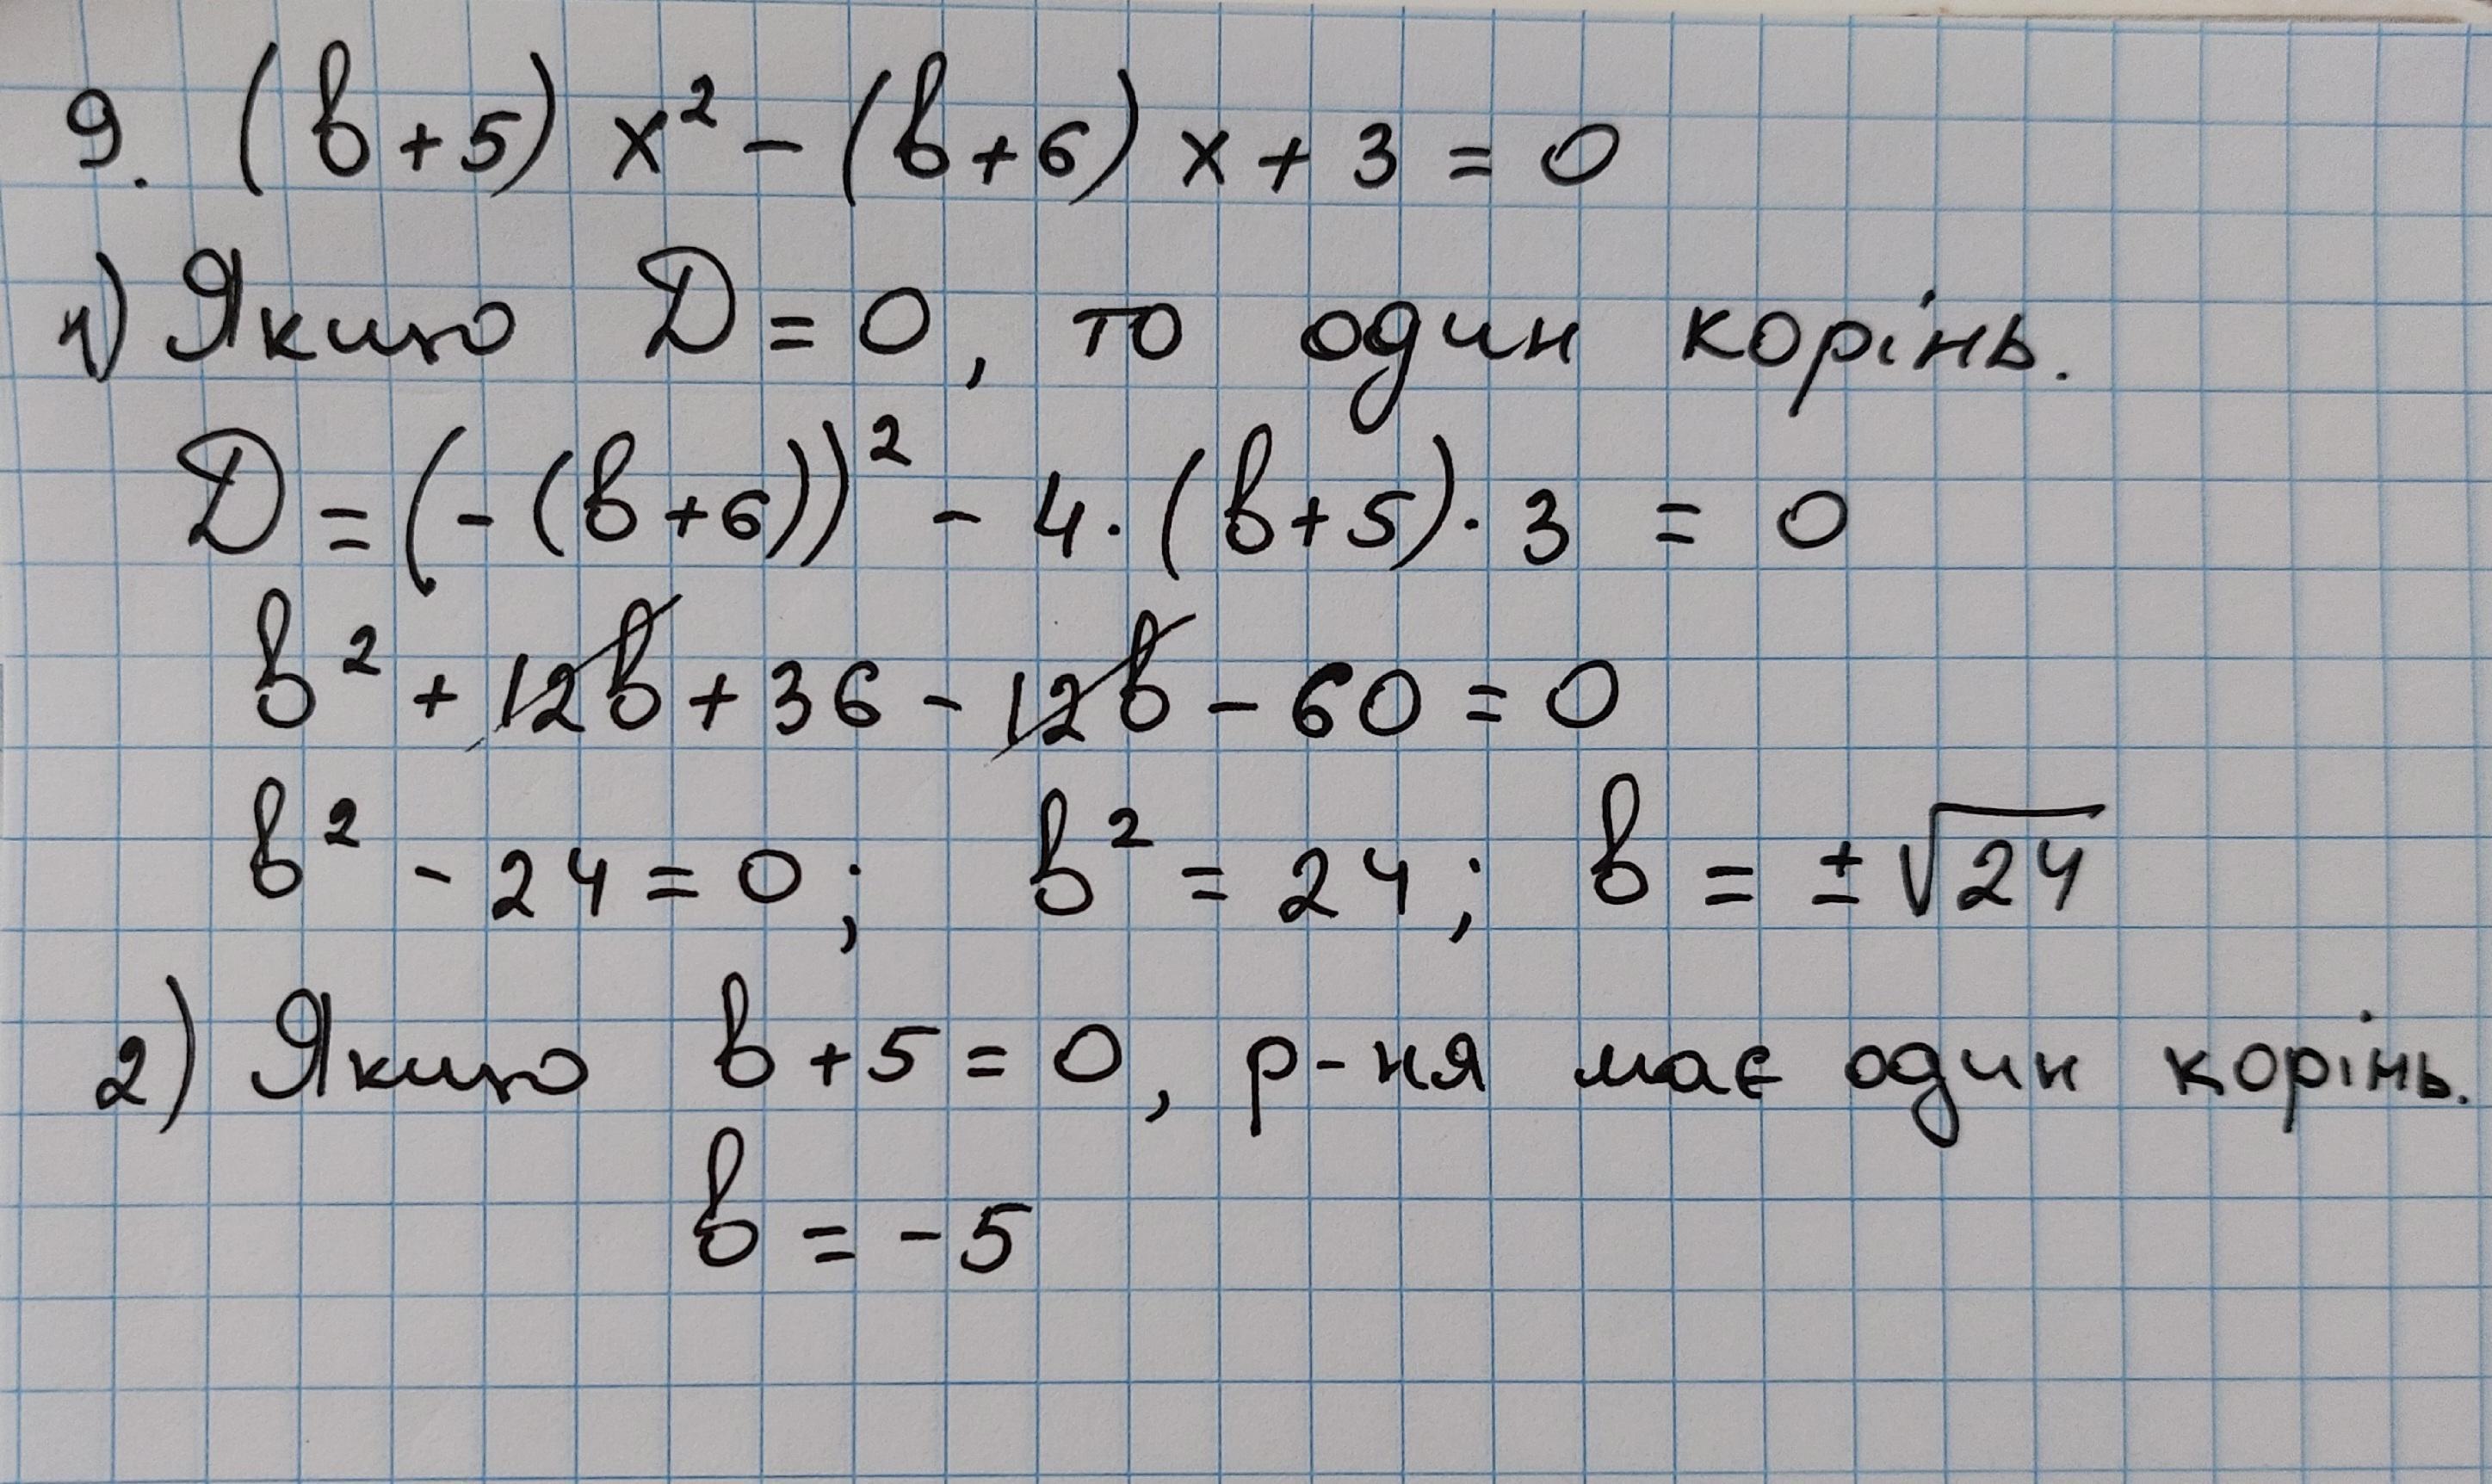 9. (b+5) x² - (b+6) x + 3 = 0
1) Якщо D = 0, то один корінь.
D = (-(b+6))² - 4·(b+5)·3 = 0
b² + 12b + 36 - 12b - 60 = 0
b² - 24 = 0; b² = 24; b = ±√24
2) Якщо b+5=0, р-ня має один корінь.
b = -5